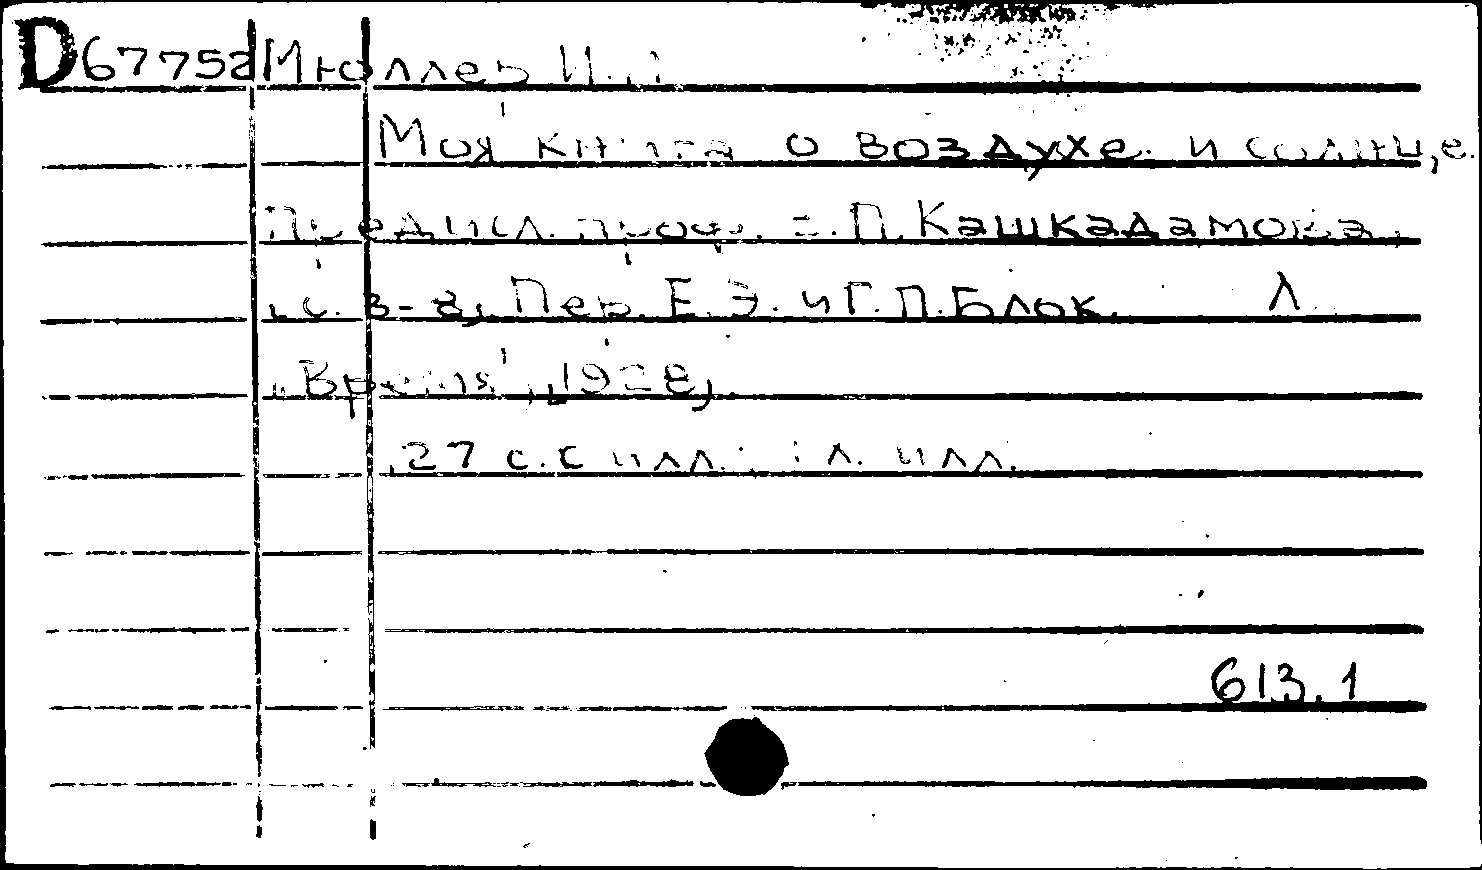 D67752 Мюллер И.
Моя книга о воздухе и солнце.
Предисл. проф. П. Кашкадамова,
с. 3-8, Пер. Е. Э. и Г. П. Блок. Л
„Время", 1928,
127 с. с илл.; 1 л. илл.
613.1